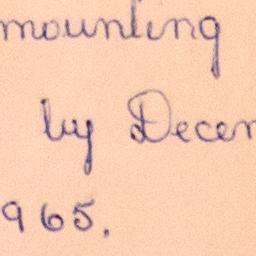 mounting
by Decem
965.